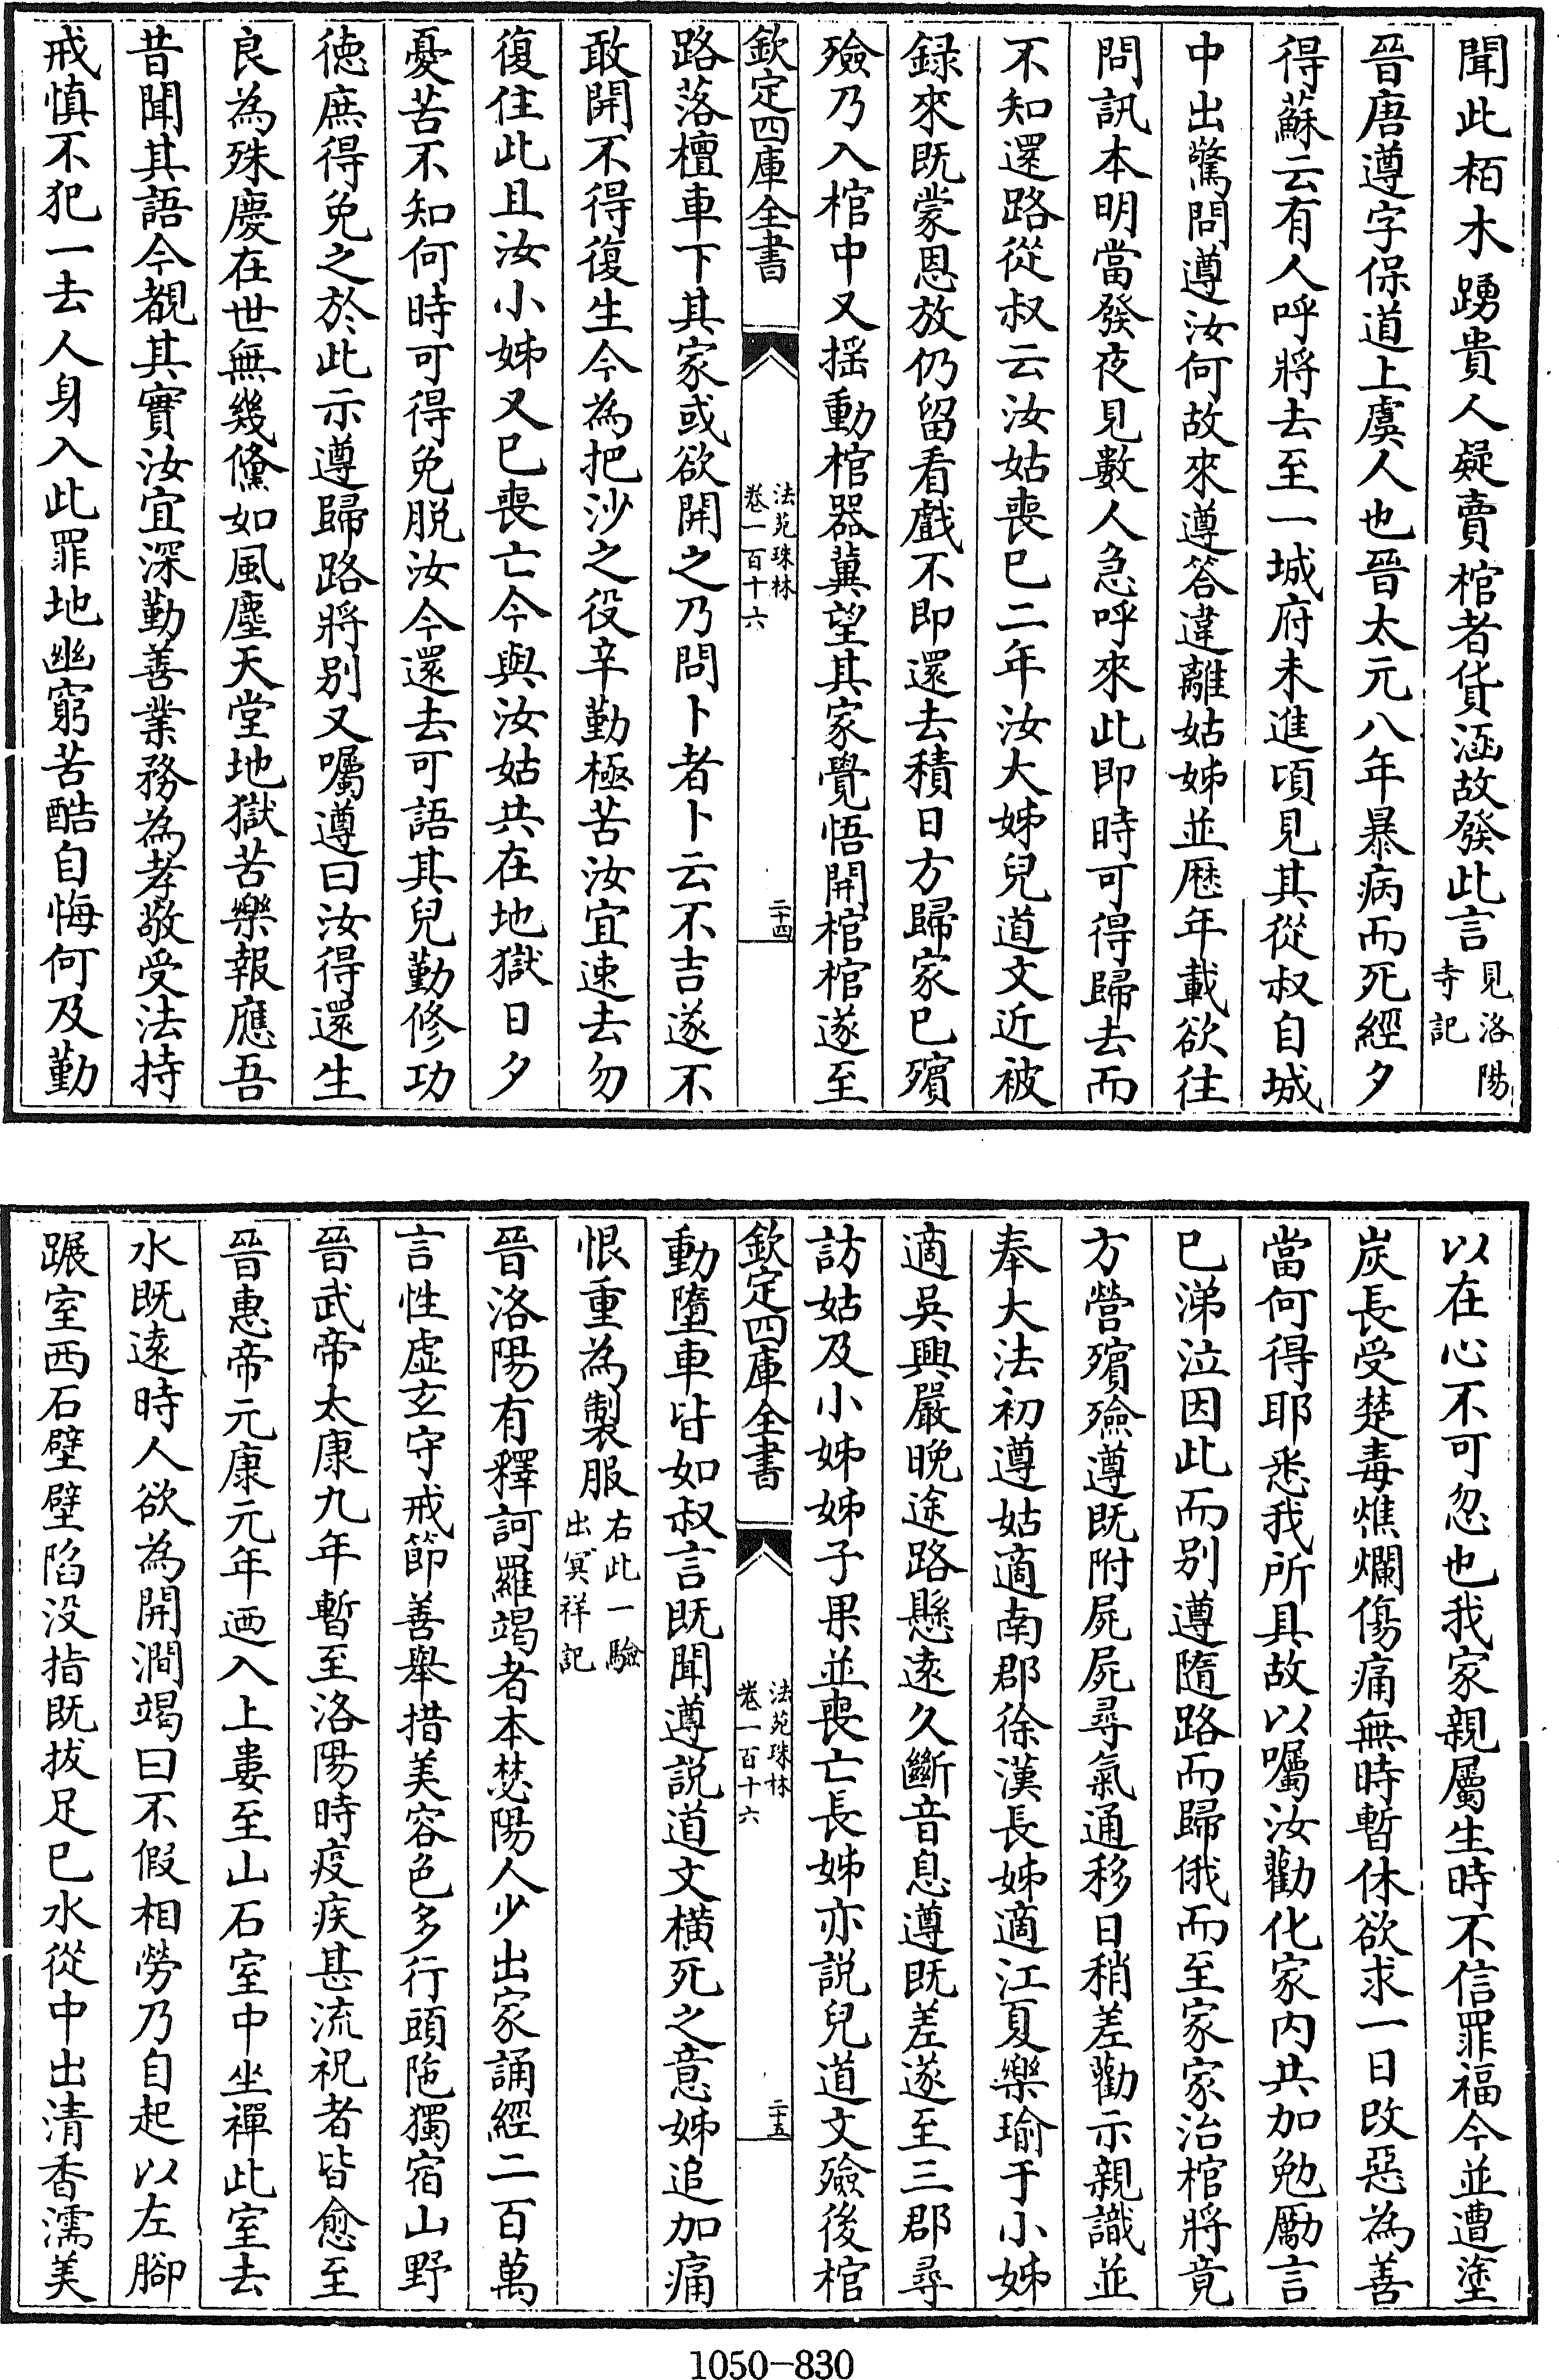 聞此栢木踴貴人疑賣棺者貨涵故發此言見洛陽寺記
晉唐遵字保道上虞人也晉太元八年暴病而死經夕
得蘇云有人呼將去至一城府未進頃見其從叔自城
中出驚問遵汝何故來遵答違離姑姊並歷年載欲往
問訊本明當發夜見數人急呼來此即時可得歸去而
不知還路從叔云汝姑喪已二年汝大姊兒道文近被
録來既蒙恩放仍留看戲不即還去積日方歸家已殯
殮乃入棺中又揺動棺器冀望其家覺悟開棺棺遂至
欽定四庫全書
法苑珠林
卷一百十六
二十四
路落檀車下其家或欲開之乃問卜者卜云不吉遂不
敢開不得復生今為把沙之役辛勤極苦汝宜速去勿
復住此且汝小姊又已喪亡今與汝姑共在地獄日夕
憂苦不知何時可得免脱汝今還去可語其兒勤修功
徳庶得免之於此示遵歸路將别又囑遵曰汝得還生
良為殊慶在世無幾儵如風塵天堂地獄苦樂報應吾
昔聞其語今覩其實汝宜深勤善業務為孝敬受法持
戒慎不犯一去人身入此罪地幽窮苦酷自悔何及勤
以在心不可忽也我家親屬生時不信罪福今並遭塗
炭長受楚毒燋爛傷痛無時暫休欲求一日改惡為善
當何得耶悉我所具故以囑汝勸化家内共加勉勵言
已涕泣因此而别遵隨路而歸俄而至家家治棺將竟
方營殯殮遵既附屍屍尋氣通移日稍差勸示親識並
奉大法初遵姑適南郡徐漢長姊適江夏樂瑜于小姊
適吳興嚴晚途路懸逺久斷音息遵既差遂至三郡尋
訪姑及小姊姊子果並喪亡長姊亦説兒道文殮後棺
欽定四庫全書
法苑珠林
卷一百十六
二十五
動墮車皆如叔言既聞遵説道文橫死之意姊追加痛
恨重為製服右此一驗出冥祥記
晉洛陽有釋訶羅竭者本樊陽人少出家誦經二百萬
言性虛玄守戒節善舉措美容色多行頭陁獨宿山野
晉武帝太康九年暫至洛陽時疫疾甚流祝者皆愈至
晉惠帝元康元年迺入上婁至山石室中坐禪此室去
水既逺時人欲為開澗竭曰不假相勞乃自起以左腳
蹍室西石壁壁陷没指既拔足已水從中出清香濡美
1050-830